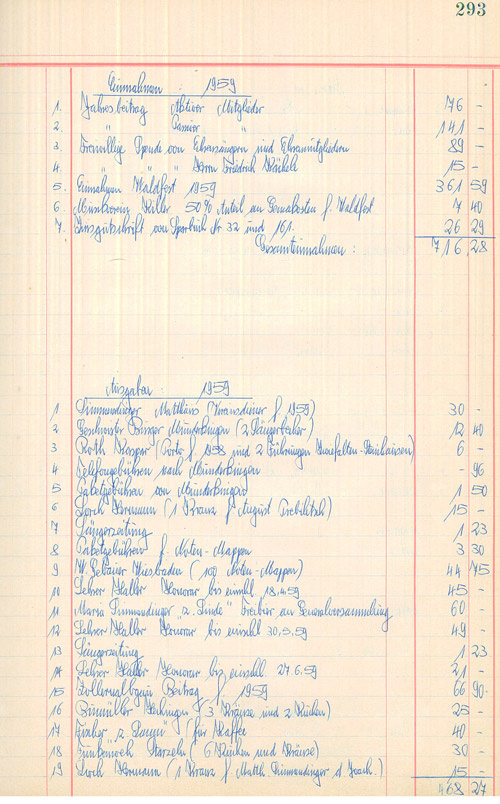 293
Einnahmen : 1959
1. Jahresbeitrag Aktiver Mitglieder 76 -
2. " Passiver " 141 -
3. Freiwillige Spende von Ehrensängern und Ehrenmitgliedern 89 -
4. " " " Herrn Friedrich Röcheli 15 -
5. Einnahmen Waldfest 1959 361 59
6. Musikverein Killer 50% Anteil an f. Waldfest 7 40
7. Zinsgutschrift von Sparbuch Nr 32 und 161. 26 29
Gesamteinnahmen : 716,28
Ausgaben : 1959
1 Matthäus (Vereinsdiener f 1959) 30 -
2 Geschwister Burger (2 Sängerbecher) 12 40
3 Roth Kaspar (Porto f 1958 und 2 ) 6 -
4 Telefongebühren nach - 96
5 Paketgebühren von 1 50
6 Lorch Hermann (1 Kranz f August ) 15 -
7 Sängerzeitung 1 23
8 Paketgebühren f. Noten-Mappen 3 30
9 Wiesbaden (100 Noten-Mappen) 44 75
10 Lehrer Haller Honorar bis einschl 18.4.59 45 -
11 Maria "z. Linde" an Generalversammlung 60 -
12 Lehrer Haller Honorar bis einschl 30.5.59 49 -
13 Sängerzeitung 1 23
14 Lehrer Haller Honorar bis einschl 27.6.59 21 -
15 Zollernalbgau Beitrag f 1959 66 90
16 Hechingen (3 Kränze und 2 Kuchen) 25 -
17 Fischer "z. " (für Kaffee 40 -
18 Starzeln (6 Kuchen und Kränze) 30 -
19 Lorch Hermann (1 Kranz f Matth. d Joach.) 15 -
468 27